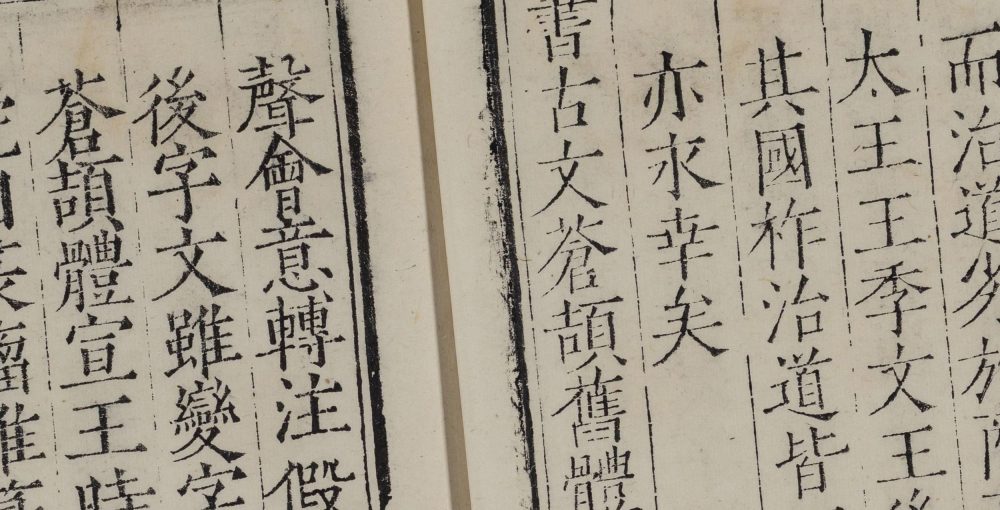 而治道必於
太王王季文王後
其國祚治道皆
亦永幸矣
書古文蒼頡舊體
聲會意轉注假
後字文雖變字
蒼頡體宣王時